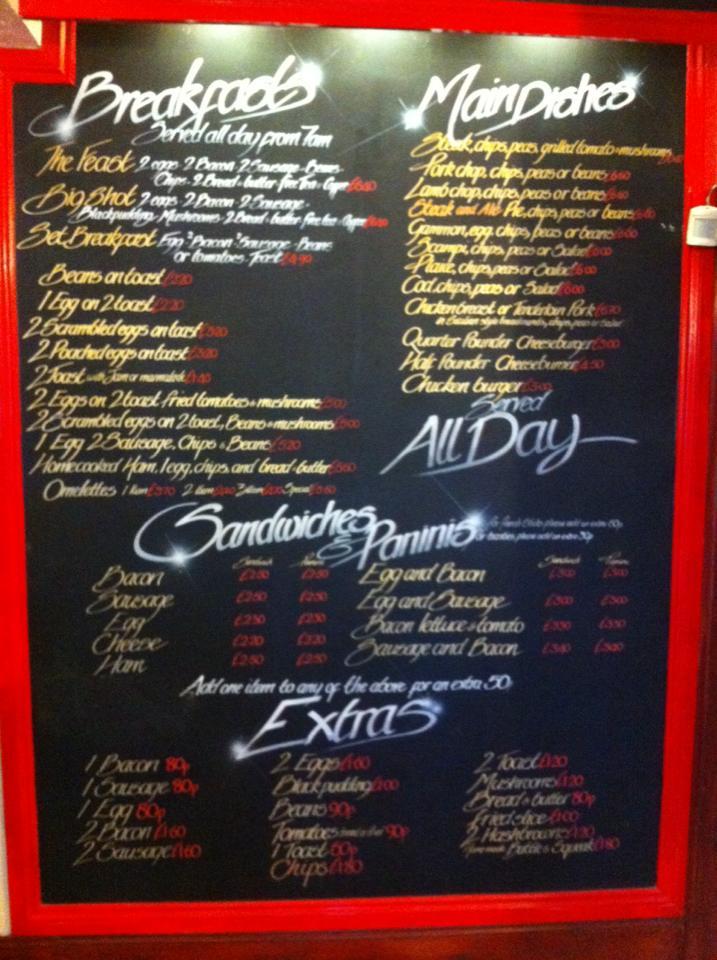 Breakfasts
Served all day from 7am
The Feast 2 eggs · 2 Bacon · 2 Sausage · Beans
Chips · 2 Bread + butter · free Tea or
Big Shot 2 eggs · 2 Bacon · 2 Sausage ·
Blackpudding · Mushrooms · 2 Bread + butter · free tea or
Set Breakfast Egg 2 Bacon 2 Sausage · Beans
or tomatoes · Toast £4.90
Beans on toast £2.20
1 Egg on 2 toast £2.20
2 Scrambled eggs on toast £3.20
2 Poached eggs on toast £3.20
2 Toast with Jam or marmalade £1.40
2 Eggs on 2 toast, fried tomatoes + mushrooms £5.00
2 Scrambled eggs on 2 toast, Beans + mushrooms £5.00
1 Egg 2 Sausage, Chips + Beans £5.20
Homecooked Ham, 1 egg, chips and bread + butter
Omelettes 1 Item £3.70 2 Item 3 Item Special
Main Dishes
Steak, chips, peas, grilled tomato + mushrooms
Pork chop, chips, peas or beans
Lamb chop, chips, peas or beans
Steak and Ale Pie, chips, peas or beans
Gammon, egg, chips, peas or beans
Scampi, chips, peas or Salad £6.00
Plaice, chips, peas or Salad £6.00
Cod, chips, peas or Salad £6.00
Chicken breast or Tenderloin Pork £6.70
chips, peas or Salad
Quarter Pounder Cheeseburger £3.00
Half Pounder Cheeseburger £4.50
Chicken burger £3.00
Served
All Day
Sandwiches & Paninis
for french Sticks please add an extra 60p
please add an extra 30p
Sandwich Panini
Bacon £2.50 £2.50
Sausage £2.50 £2.50
Egg £2.30 £2.30
Cheese £2.20 £2.20
Ham £2.50 £2.50
Sandwich Panini
Egg and Bacon £3.00 £3.00
Egg and Sausage £3.00 £3.00
Bacon lettuce + tomato £3.30 £3.30
Sausage and Bacon £3.40 £3.40
Add one item to any of the above for an extra 50p
Extras
1 Bacon 80p
1 Sausage 80p
1 Egg 80p
2 Bacon £1.60
2 Sausage £1.60
2 Eggs £1.60
Black pudding £1.00
Beans 90p
Tomatoes 90p
1 Toast 60p
Chips £1.80
2 Toast £1.20
Mushrooms £1.20
Bread + butter 80p
Fried slice £1.00
2 Hashbrowns £1.20
Home made Bubble + Squeak £1.80